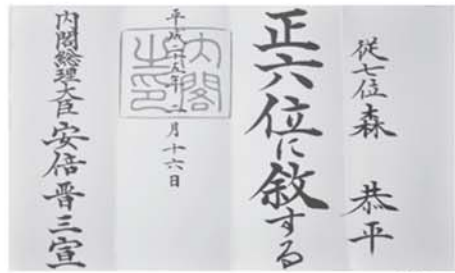 従七位森 恭平
正六位に敘する
平成二十九年 月十六日
内閣之印
内閣総理大臣安倍晋三宣